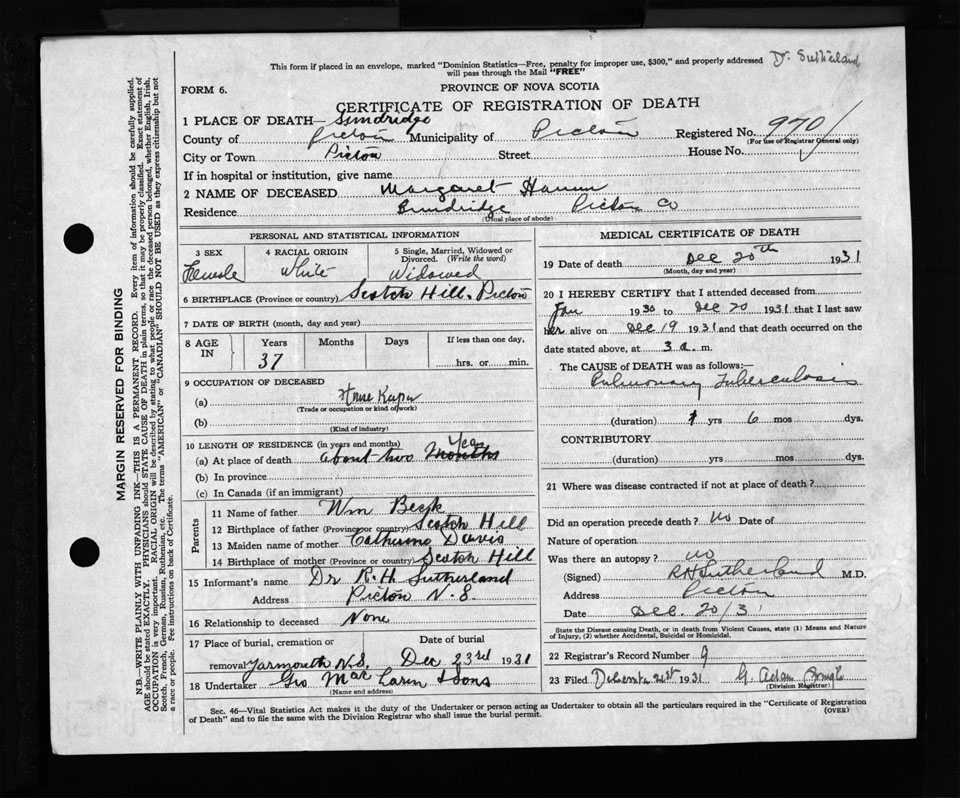 Dr. Sutherland
This form if placed in an envelope, marked "Dominion Statistics—Free, penalty for improper use, $300," and properly addressed
will pass through the Mail "FREE"
FORM 6.
PROVINCE OF NOVA SCOTIA
CERTIFICATE OF REGISTRATION OF DEATH
1 PLACE OF DEATH—
County of Pictou Municipality of Pictou Registered No. 970
(For use of Registrar General only)
City or Town Pictou Street House No.
If in hospital or institution, give name
2 NAME OF DECEASED Margaret
Residence Pictou Co
(Usual place of abode)
PERSONAL AND STATISTICAL INFORMATION
3 SEX Female
4 RACIAL ORIGIN White
5 Single, Married, Widowed or Divorced. (Write the word) Widowed
6 BIRTHPLACE (Province or country) Scotch Hill, Pictou
7 DATE OF BIRTH (month, day and year)
8 AGE IN Years Months Days If less than one day,
37 hrs. or min.
9 OCCUPATION OF DECEASED
(a) House Keeper
(Trade or occupation or kind of work)
(b)
(Kind of industry)
10 LENGTH OF RESIDENCE (in years and months)
(a) At place of death about two Months
(b) In province
(c) In Canada (if an immigrant)
Parents
11 Name of father Wm
12 Birthplace of father (Province or country) Scotch Hill
13 Maiden name of mother Catherine Davis
14 Birthplace of mother (Province or country) Scotch Hill
15 Informant's name Dr R.H. Sutherland
Address Pictou N.S.
16 Relationship to deceased None
17 Place of burial, cremation or Date of burial
removal Yarmouth N.S. Dec 23rd 1931
18 Undertaker Geo MacLaren & Sons
(Name and address)
MEDICAL CERTIFICATE OF DEATH
19 Date of death Dec 20th 1931
(Month, day and year)
20 I HEREBY CERTIFY that I attended deceased from
Jan 1930 to Dec 20 1931 that I last saw
her alive on Dec 19 1931 and that death occurred on the
date stated above, at 3 a. m.
The CAUSE of DEATH was as follows:—
Pulmonary Tuberculosis
(duration) 1 yrs 6 mos dys.
CONTRIBUTORY
(duration) yrs mos dys.
21 Where was disease contracted if not at place of death?
Did an operation precede death? no Date of
Nature of operation
Was there an autopsy? no
(Signed) RH Sutherland M.D.
Address Pictou
Date Dec. 20/31
State the Disease causing Death, or in death from Violent Causes, state (1) Means and Nature
of Injury, (2) whether Accidental, Suicidal or Homicidal.
22 Registrar's Record Number 9
23 Filed 21st 1931 G. Adam
(Division Registrar)
Sec. 46—Vital Statistics Act makes it the duty of the Undertaker or person acting as Undertaker to obtain all the particulars required in the "Certificate of Registration
of Death" and to file the same with the Division Registrar who shall issue the burial permit.
(OVER)
MARGIN RESERVED FOR BINDING
N.B.—WRITE PLAINLY WITH UNFADING INK—THIS IS A PERMANENT RECORD. Every item of information should be carefully supplied.
AGE should be stated EXACTLY. PHYSICIANS should STATE CAUSE OF DEATH in plain terms, so that it may be properly classified. Exact statement of
OCCUPATION is very important. RACIAL ORIGIN will be described by stating to what people or race the deceased person belonged, whether English, Irish,
Scotch, French, German, Russian, Ruthenian, etc. The terms "AMERICAN" or "CANADIAN" SHOULD NOT BE USED as they express citizenship but not
a race or people. See instructions on back of Certificate.